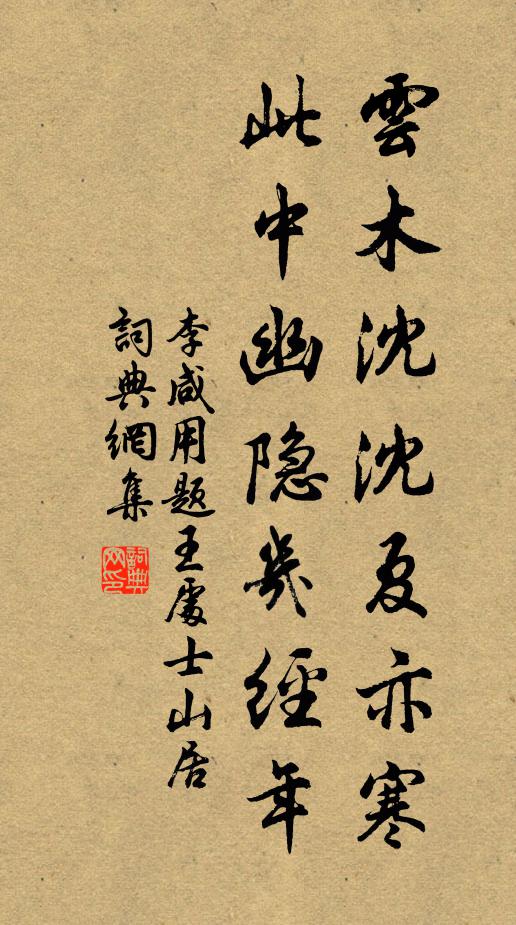 雲木沈沈夏亦寒
此中幽隐幾經年
李咸用題王處士山居
詞典網集
詞典
网印